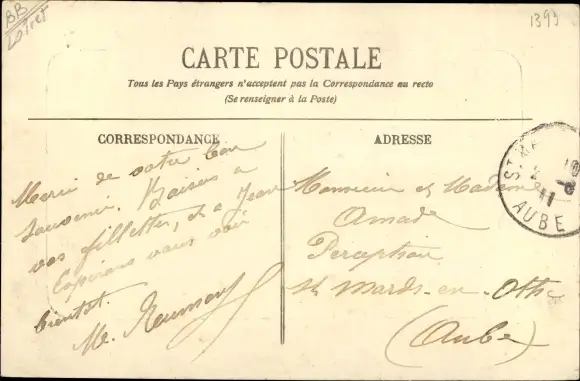 BB
Loiret
1393
CARTE POSTALE
Tous les Pays étrangers n'acceptent pas la Correspondance au recto
(Se renseigner à la Poste)
CORRESPONDANCE
Merci de votre bon
souvenir. Baisers a
vos fillettes, et a Jean
Espérons vous voir
bientôt.
M.
ADRESSE
Monsieur et Madame
Amade
Perception
St Mards-en-Othe
(Aube)
ST M
AUBE